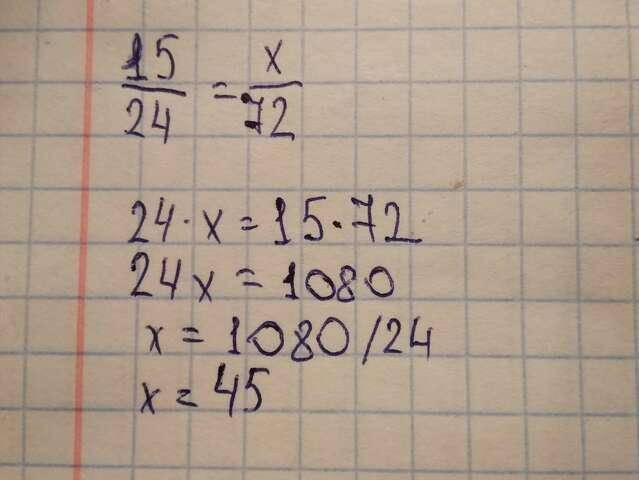 15/24 = x/72
24 · x = 15 · 72
24x = 1080
x = 1080/24
x = 45